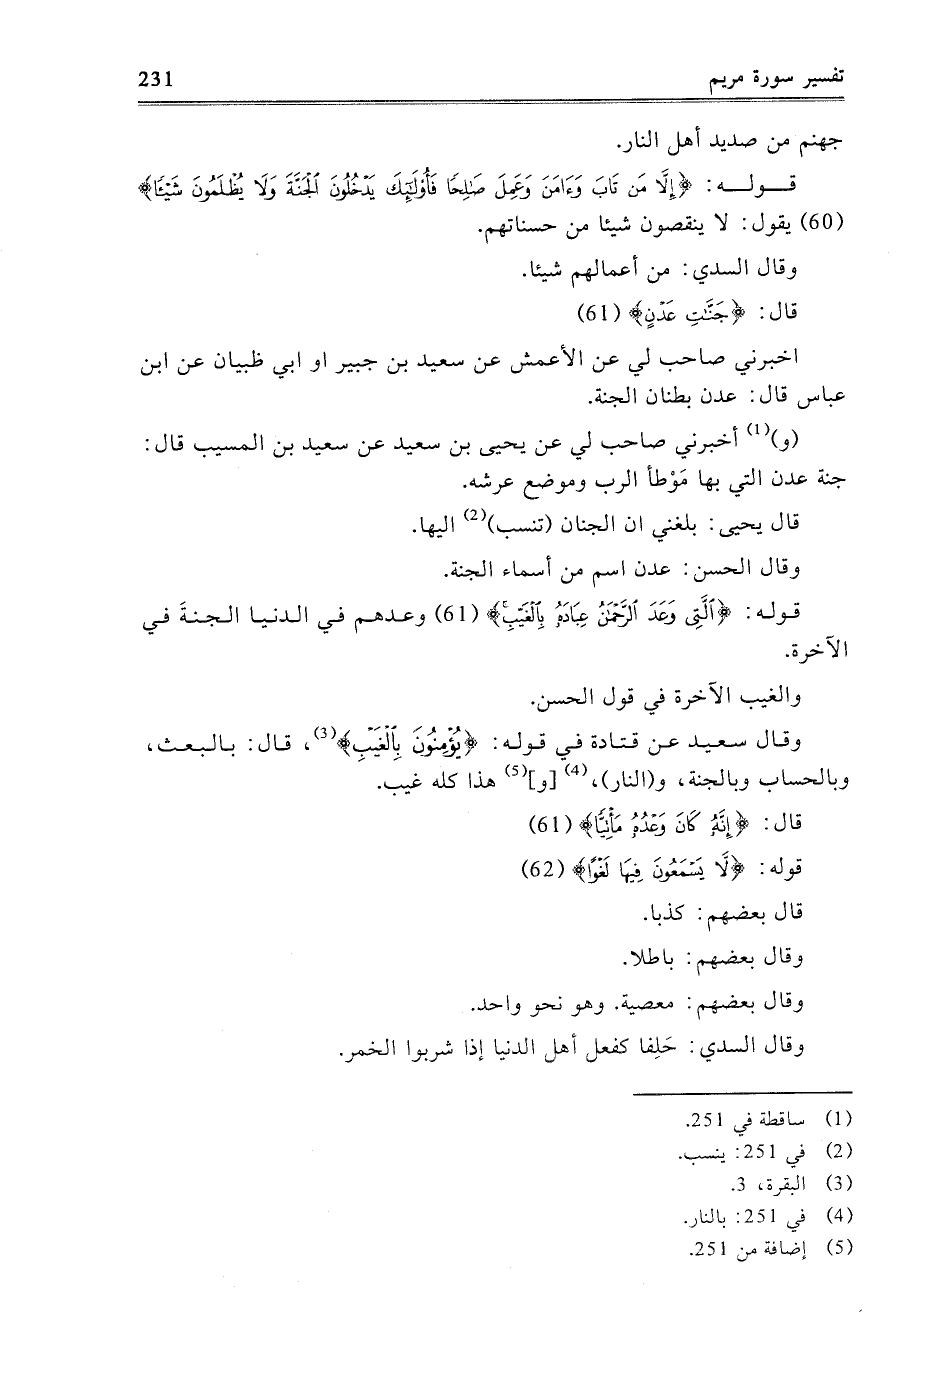 تفسير سورة مريم 231
جهنم من صديد أهل النار.
قـولـه: ﴿إِلَّا مَن تَابَ وَءَامَنَ وَعَمِلَ صَٰلِحًا فَأُو۟لَٰٓئِكَ يَدْخُلُونَ ٱلْجَنَّةَ وَلَا يُظْلَمُونَ شَيْـًٔا﴾
(60) يقول: لا ينقصون شيئا من حسناتهم.
وقال السدي: من أعمالهم شيئا.
قال: ﴿جَنَّٰتِ عَدْنٍ﴾ (61)
اخبرني صاحب لي عن الأعمش عن سعيد بن جبير او ابي ظبيان عن ابن
عباس قال: عدن بطنان الجنة.
(و)(1) أخبرني صاحب لي عن يحيى بن سعيد عن سعيد بن المسيب قال:
جنة عدن التي بها مَوْطأ الرب وموضع عرشه.
قال يحيى: بلغني ان الجنان (تنسب)(2) اليها.
وقال الحسن: عدن اسم من أسماء الجنة.
قـولـه: ﴿ٱلَّتِى وَعَدَ ٱلرَّحْمَٰنُ عِبَادَهُۥ بِٱلْغَيْبِ﴾ (61) وعـدهـم فـي الـدنـيـا الـجـنـةَ فـي
الآخرة.
والغيب الآخرة في قول الحسن.
وقـال سـعـيـد عـن قـتـادة فـي قـولـه: ﴿يُؤْمِنُونَ بِٱلْغَيْبِ﴾(3)، قـال: بـالـبـعـث،
وبالحساب وبالجنة، و(النار)،(4) [و](5) هذا كله غيب.
قال: ﴿إِنَّهُۥ كَانَ وَعْدُهُۥ مَأْتِيًّا﴾ (61)
قوله: ﴿لَّا يَسْمَعُونَ فِيهَا لَغْوًا﴾ (62)
قال بعضهم: كذبا.
وقال بعضهم: باطلا.
وقال بعضهم: معصية. وهو نحو واحد.
وقال السدي: حَلِفا كفعل أهل الدنيا إذا شربوا الخمر.
(1) ساقطة في 251.
(2) في 251: ينسب.
(3) البقرة، 3.
(4) في 251: بالنار.
(5) إضافة من 251.